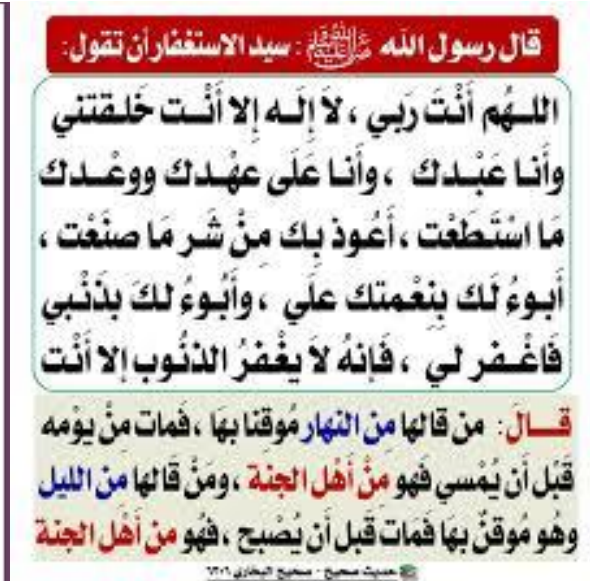 قال رسول الله ﷺ : سيد الاستغفار أن تقول:
اللهُم أَنْتَ رَبي ، لاَ إلَه إلا أَنْت خَلقتني
وأَنا عَبْدك ، وأَنا عَلَى عهْدك ووعْدك
مَا اسْتَطَعْت ، أَعُوذ بك مِنْ شَر مَا صنَعْت ،
أَبوءُ لَك بِنعْمتك علَي ، وأَبُوءُ لكَ بذَنْبي
فَاغْفر لي ، فَإنهُ لاَ يغْفرُ الذنُوب إلا أَنْت
قالَ: من قالها من النهار مُوقنا بهَا ، فمات منْ يوْمه
قَبْل أَن يُمْسي فهو منْ أهْل الجنة ، ومَنْ قَالها من الليل
وهو مُوقنٌ بها فَماتَ قَبل أَن يُصْبح ، فهُو من أهْل الجنة
حديث صحيح - صحيح البخاري ٦٣٠٦